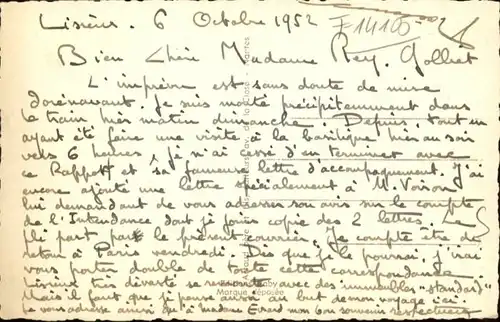 Lisieux. 6 Octobre 1952
Bien Chère Madame Rey. Golliet
L'imprévu est sans doute de mise
dorénavant. Je suis monté précipitamment dans
le train hier matin dimanche. Depuis, tout en
ayant été faire une visite à la basilique hier au soir
vers 6 heures, je n'ai cessé d'en terminer avec
ce Rapport et sa fameuse lettre d'accompagnement. J'ai
encore ajouté une lettre spécialement à M. Voison
lui demandant de vous adresser son avis sur le compte
de l'Intendance dont je joins copie des 2 lettres. Le
pli part par le présent courrier. Je compte être de
retour à Paris vendredi. Dès que je le pourrai, j'irai
vous porter double de toute cette correspondance
Lisieux très dévasté se avec des immeubles "standard"
Mais il faut que je pense aussi au but de mon voyage ici.
Je vous adresse ainsi qu'à Madame mon bon souvenir respectueux
Marque déposée